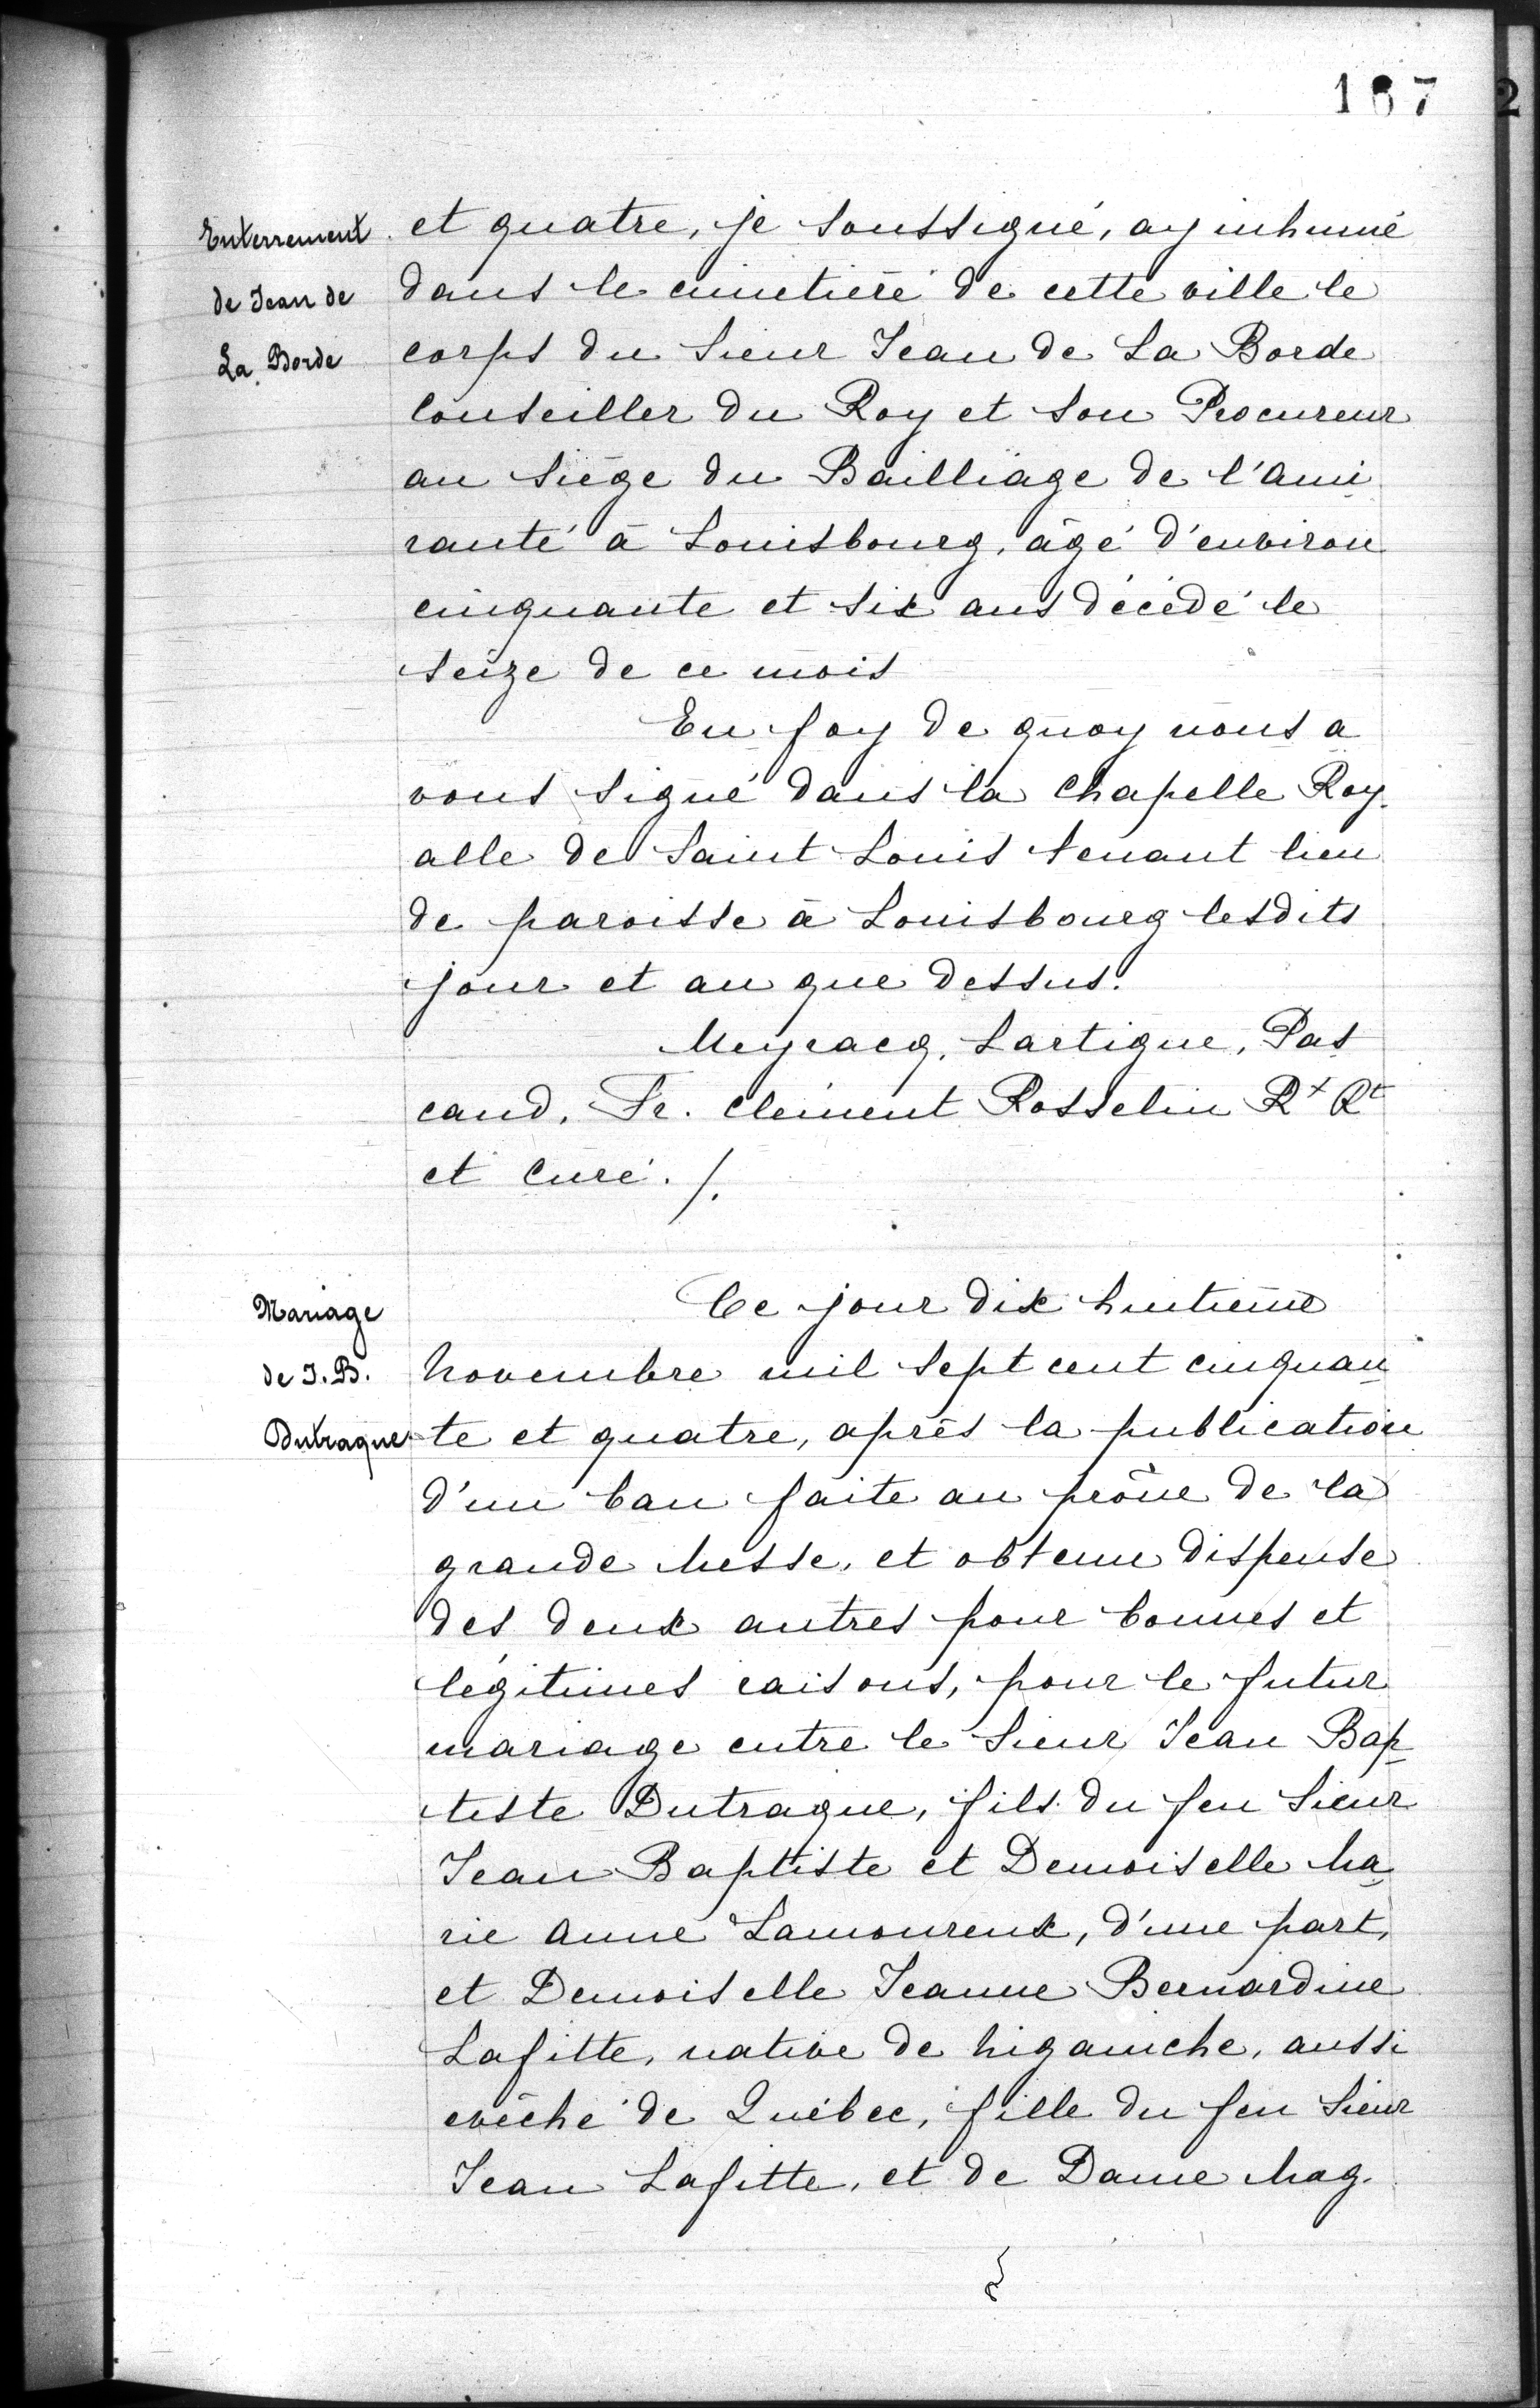 187
2
Enterrement
de Jean de
La Borde
et quatre, je soussigné, ay inhumé
dans le cimetière de cette ville le
corps du Sieur Jean de La Borde
Conseiller du Roy et son Procureur
au siège du Bailliage de l'ami
rauté à Louisbourg, âgé d'environ
cinquante et six ans décédé le
seize de ce mois
En foy de quoy nous a
vons signé dans la Chapelle Roy-
alle de Saint Louis tenant lieu
de paroisse à Louisbourg lesdits
jour et an que dessus.
Meyracq, Lartigue, Pas
caud, Fr. Clément Rosselin Rx Rt
et Curé. /.
Mariage
de J. B.
Dutraque
Ce jour dix huitième
Novembre mil sept cent cinquan
te et quatre, après la publication
d'un ban faite au prône de la
grande Messe, et obtenu dispense
des deux autres pour bonnes et
légitimes raisons, pour le futur
mariage entre le Sieur Jean Bap
tiste Dutraque, fils du feu Sieur
Jean Baptiste et Demoiselle Ma
rie Anne Lamoureux, d'une part,
et Demoiselle Jeanne Bernardine
Lafitte, native de Niganiche, aussi
evêché de Québec, fille du feu Sieur
Jean Lafitte, et de Dame Mag-